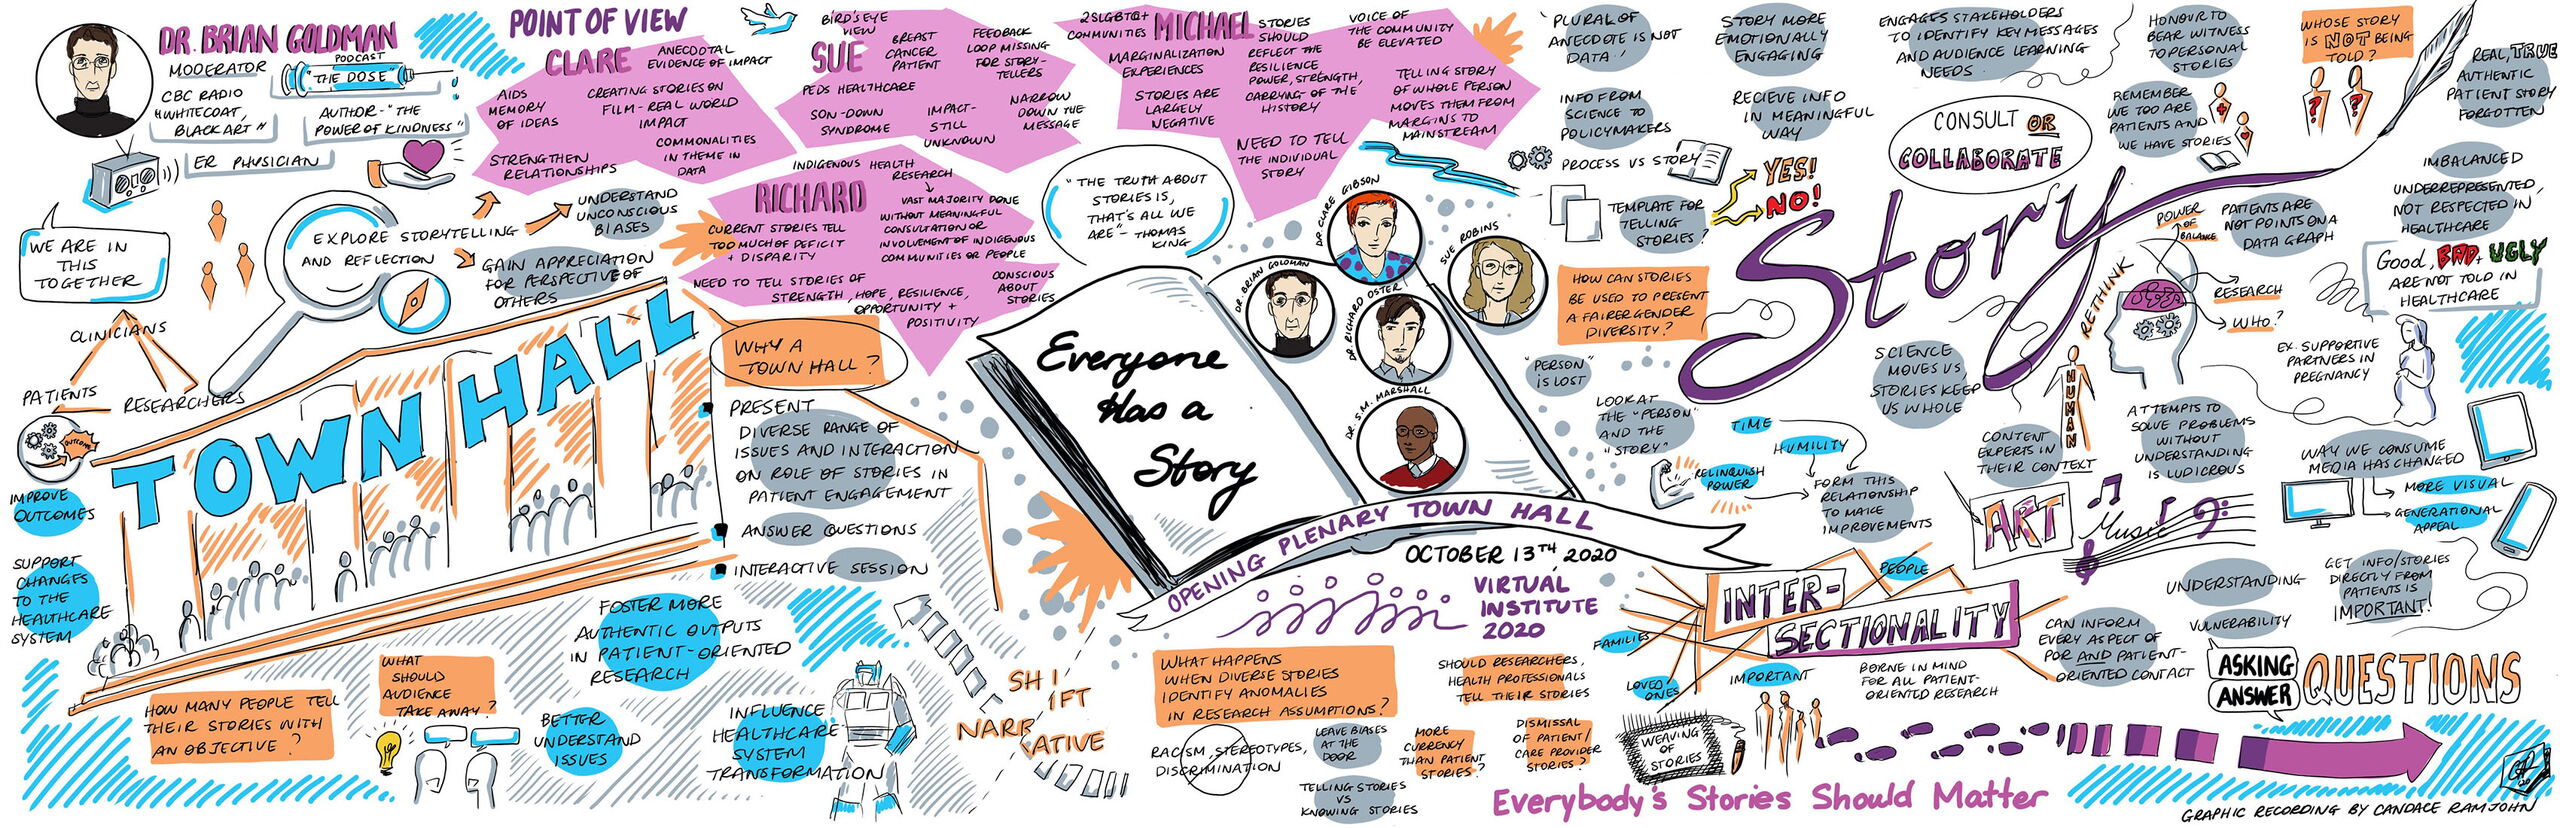 DR. BRIAN GOLDMAN
MODERATOR
PODCAST
"THE DOSE"
CBC RADIO
"WHITECOAT,
BLACK ART"
AUTHOR - "THE
POWER OF KINDNESS"
ER PHYSICIAN
WE ARE IN
THIS
TOGETHER
CLINICIANS
PATIENTS
RESEARCHERS
OUTCOME
IMPROVE
OUTCOMES
SUPPORT
CHANGES
TO THE
HEALTHCARE
SYSTEM
EXPLORE STORYTELLING
AND REFLECTION
UNDERSTAND
UNCONSCIOUS
BIASES
GAIN APPRECIATION
FOR PERSPECTIVE OF
OTHERS
TOWN HALL
POINT OF VIEW
CLARE
ANECDOTAL
EVIDENCE OF IMPACT
AIDS
MEMORY
OF IDEAS
CREATING STORIES ON
FILM - REAL WORLD
IMPACT
STRENGTHEN
RELATIONSHIPS
COMMONALITIES
IN THEME IN
DATA
BIRD'S EYE
VIEW
SUE
BREAST
CANCER
PATIENT
FEEDBACK
LOOP MISSING
FOR STORY-
TELLERS
PEDS HEALTHCARE
SON - DOWN
SYNDROME
IMPACT -
STILL
UNKNOWN
NARROW
DOWN THE
MESSAGE
2SLGBTQ+
COMMUNITIES
MICHAEL
MARGINALIZATION
EXPERIENCES
STORIES ARE
LARGELY
NEGATIVE
STORIES
SHOULD
REFLECT THE
RESILIENCE
POWER, STRENGTH,
CARRYING OF THE
HISTORY
VOICE OF
THE COMMUNITY
BE ELEVATED
TELLING STORY
OF WHOLE PERSON
MOVES THEM FROM
MARGINS TO
MAINSTREAM
NEED TO TELL
THE INDIVIDUAL
STORY
INDIGENOUS HEALTH
RESEARCH
RICHARD
VAST MAJORITY DONE
WITHOUT MEANINGFUL
CONSULTATION OR
INVOLVEMENT OF INDIGENOUS
COMMUNITIES OR PEOPLE
CURRENT STORIES TELL
TOO MUCH OF DEFICIT
+ DISPARITY
NEED TO TELL STORIES OF
STRENGTH, HOPE, RESILIENCE,
OPPORTUNITY +
POSITIVITY
CONSCIOUS
ABOUT
STORIES
"THE TRUTH ABOUT
STORIES IS,
THAT'S ALL WE
ARE" - THOMAS
KING
WHY A
TOWN HALL?
PRESENT
DIVERSE RANGE OF
ISSUES AND INTERACTION
ON ROLE OF STORIES IN
PATIENT ENGAGEMENT
ANSWER QUESTIONS
INTERACTIVE SESSION
FOSTER MORE
AUTHENTIC OUTPUTS
IN PATIENT-ORIENTED
RESEARCH
HOW MANY PEOPLE TELL
THEIR STORIES WITH
AN OBJECTIVE?
WHAT
SHOULD
AUDIENCE
TAKE AWAY?
BETTER
UNDERSTAND
ISSUES
INFLUENCE
HEALTHCARE
SYSTEM
TRANSFORMATION
SHIFT
NARRATIVE
Everyone
Has a
Story
DR. BRIAN GOLDMAN
DR. CLARE GIBSON
SUE ROBINS
DR. RICHARD OSTER
DR. S.M. MARSHALL
OPENING PLENARY TOWN HALL
OCTOBER 13TH, 2020
VIRTUAL
INSTITUTE
2020
WHAT HAPPENS
WHEN DIVERSE STORIES
IDENTIFY ANOMALIES
IN RESEARCH ASSUMPTIONS?
SHOULD RESEARCHERS,
HEALTH PROFESSIONALS
TELL THEIR STORIES
RACISM, STEREOTYPES,
DISCRIMINATION
LEAVE BIASES
AT THE
DOOR
MORE
CURRENCY
THAN PATIENT
STORIES?
DISMISSAL
OF PATIENT/
CARE PROVIDER
STORIES?
TELLING STORIES
VS
KNOWING STORIES
PLURAL OF
ANECDOTE IS NOT
DATA!
STORY MORE
EMOTIONALLY
ENGAGING
INFO FROM
SCIENCE TO
POLICYMAKERS
RECIEVE INFO
IN MEANINGFUL
WAY
PROCESS VS STORY
TEMPLATE FOR
TELLING
STORIES?
YES!
NO!
HOW CAN STORIES
BE USED TO PRESENT
A FAIRER GENDER
DIVERSITY?
"PERSON"
IS LOST
LOOK AT
THE "PERSON"
AND THE
"STORY"
TIME
HUMILITY
RELINQUISH
POWER
FORM THIS
RELATIONSHIP
TO MAKE
IMPROVEMENTS
ENGAGES STAKEHOLDERS
TO IDENTIFY KEY MESSAGES
AND AUDIENCE LEARNING
NEEDS
CONSULT OR
COLLABORATE
HONOUR TO
BEAR WITNESS
TO PERSONAL
STORIES
REMEMBER
WE TOO ARE
PATIENTS AND
WE HAVE STORIES
WHOSE STORY
IS NOT BEING
TOLD?
REAL, TRUE
AUTHENTIC
PATIENT STORY
FORGOTTEN
Story
IMBALANCED
UNDERREPRESENTED,
NOT RESPECTED IN
HEALTHCARE
Good, BAD + UGLY
ARE NOT TOLD IN
HEALTHCARE
POWER
OF
BALANCE
PATIENTS ARE
NOT POINTS ON A
DATA GRAPH
RETHINK
RESEARCH
WHO?
EX. SUPPORTIVE
PARTNERS IN
PREGNANCY
SCIENCE
MOVES US,
STORIES KEEP
US WHOLE
HUMAN
CONTENT
EXPERTS IN
THEIR CONTEXT
ATTEMPTS TO
SOLVE PROBLEMS
WITHOUT
UNDERSTANDING
IS LUDICROUS
ART
Music
WAY WE CONSUME
MEDIA HAS CHANGED
MORE VISUAL
GENERATIONAL
APPEAL
GET INFO/STORIES
DIRECTLY FROM
PATIENTS IS
IMPORTANT!
UNDERSTANDING
VULNERABILITY
INTER-
SECTIONALITY
PEOPLE
FAMILIES
LOVED
ONES
IMPORTANT
BORNE IN MIND
FOR ALL PATIENT-
ORIENTED RESEARCH
CAN INFORM
EVERY ASPECT OF
POR AND PATIENT-
ORIENTED CONTACT
ASKING
ANSWER
QUESTIONS
WEAVING
OF
STORIES
Everybody's Stories Should Matter
GRAPHIC RECORDING BY CANDACE RAMJOHN